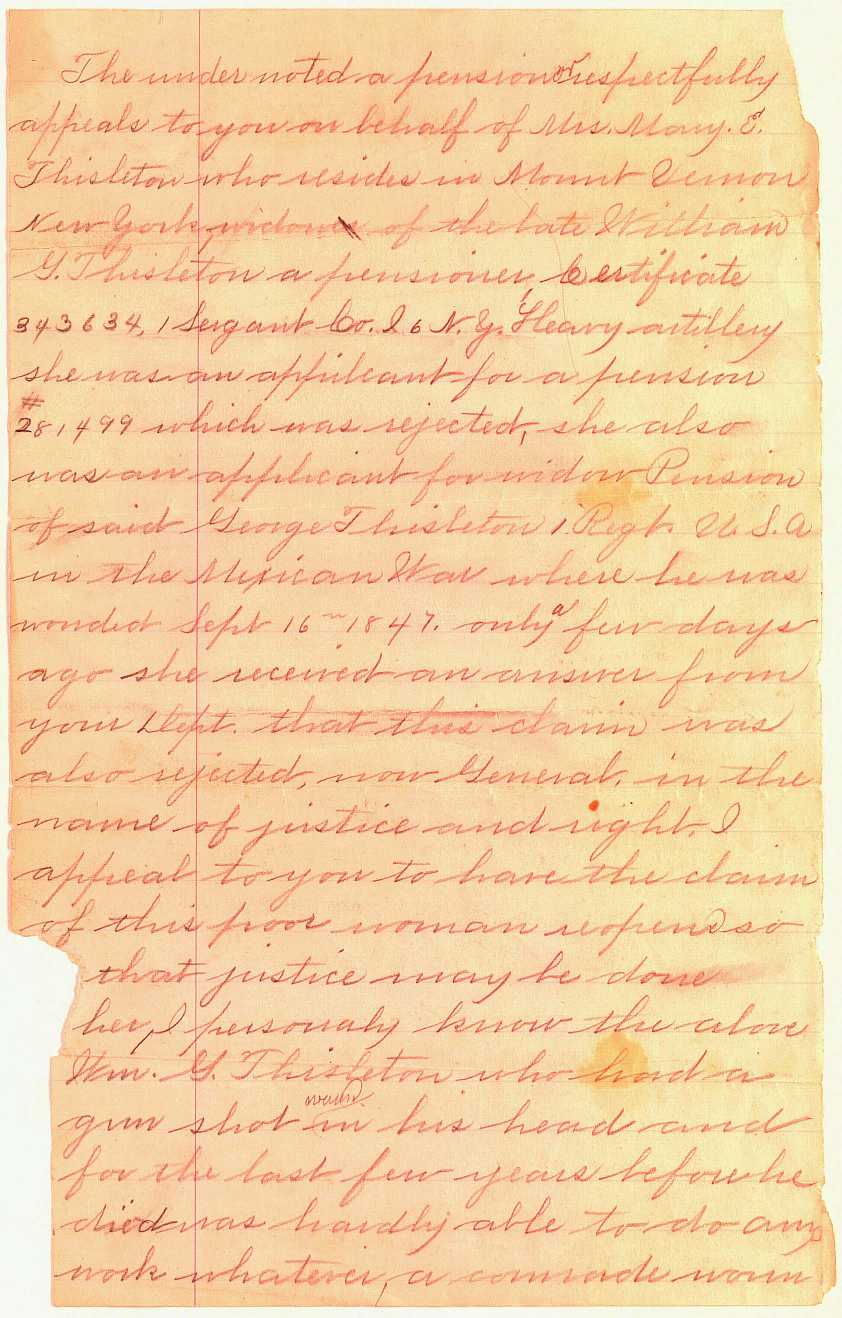 The under noted a pensioner respectfully
appeals to you on behalf of Mrs. Mary. E.
Thisleton who resides in Mount Vernon
New York, widow of the late William
G. Thisleton a pensioner, Certificate
343634, 1 Sergant Co. I 6 N. Y. Heavy artillery
she was an applicant for a pension
#
281499 which was rejected, she also
was an applicant for widow Pension
of said George Thisleton 1. Regt. U. S. A
in the Mexican War where he was
wonded Sept 16th 1847. only a few days
ago she received an answer from
your Dept. that this claim was
also rejected, now General, in the
name of justice and right, I
appeal to you to have the claim
of this poor woman reopend so
that justice may be done
her, I personaly know the above
Wm. G. Thisleton who had a
gun shot wound in his head and
for the last few years before he
died was hardly able to do any
work whatever, a comrade worn